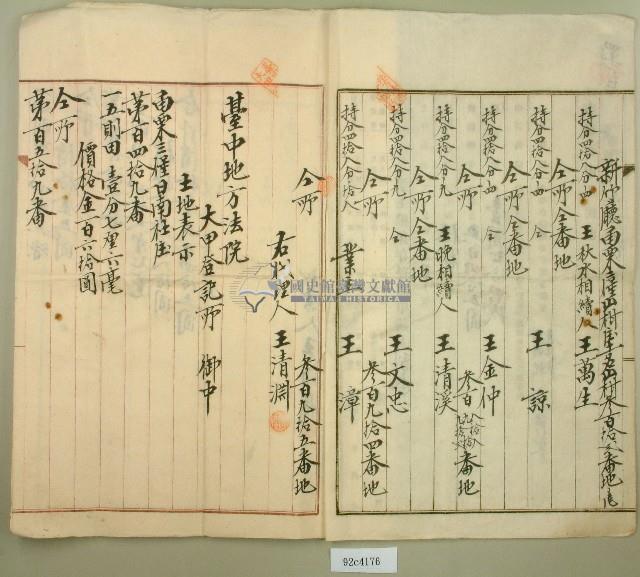 新竹廳苗栗一堡五里牌庄
持分四拾八分ノ四 王秋水相續人 王萬生
仝所仝番地
持分四拾八分ノ四 仝 王諒
仝所仝番地
持分四拾八分ノ四 仝 王金仲
仝所 參百八拾八番地
持分四拾八分ノ九 王晚相續人 王清溪
仝所仝番地
持分四拾八分ノ九 仝 王文忠
仝所 參百九拾四番地
持分四拾八分ノ拾八 業主 王漳
仝所 參百九拾五番地
右管理人 王清淵
臺中地方法院
大甲登記所 御中
土地表示
苗栗三堡日南社庄
第百四拾九番
一五則田 壹分七厘六毫
價格金一百六拾圓
仝所
第一百五拾九番
國史館臺灣文獻館
TAIWAN HISTORICA
92c4176